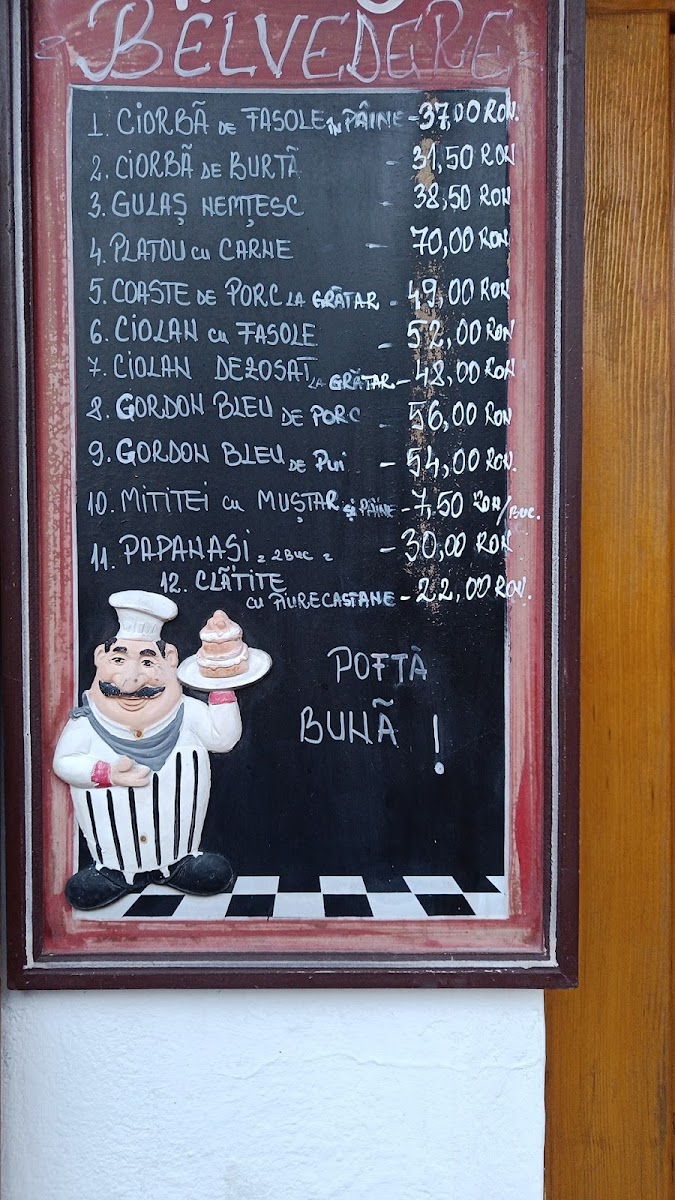 BELVEDERE
1. CIORBÃ DE FASOLE ÎN PÂINE - 37,00 RON.
2. CIORBÃ DE BURTÃ - 31,50 RON
3. GULAȘ NEMȚESC - 38,50 RON
4. PLATOU cu CARNE - 70,00 RON
5. COASTE DE PORC LA GRĂTAR - 49,00 RON
6. CIOLAN cu FASOLE - 52,00 RON
7. CIOLAN DEZOSAT LA GRĂTAR - 48,00 RON
8. GORDON BLEU DE PORC - 56,00 RON
9. GORDON BLEU DE PUI - 54,00 RON.
10. MITITEI cu MUȘTAR și PÂINE - 7,50 RON/BUC.
11. PAPANAȘI = 2BUC = - 30,00 RON
12. CLÃTITE
cu PIURE CASTANE - 22,00 RON.
POFTÃ
BUNÃ !